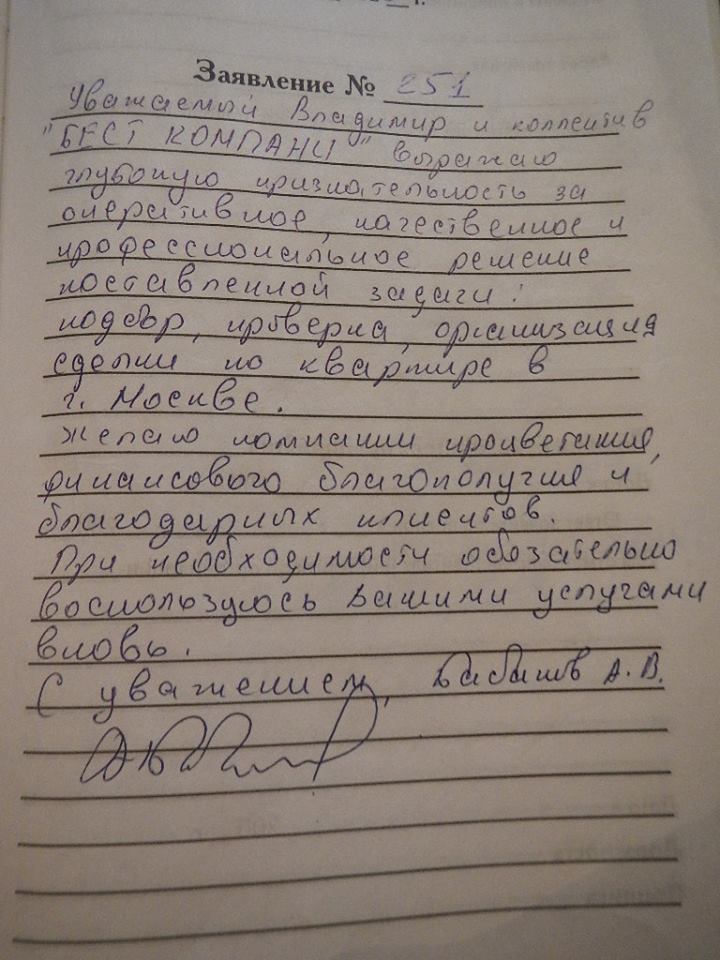 Заявление № 251
Уважаемый Владимир и коллектив
"БЕСТ КОМПАНИ" выражаю
глубокую признательность за
оперативное, качественное и
профессиональное решение
поставленной задачи:
подбор, проверка, организация
сделки по квартире в
г. Москве.
Желаю компании процветания,
финансового благополучия и
благодарных клиентов.
При необходимости обязательно
воспользуюсь Вашими услугами
вновь.
С уважением, А.В.